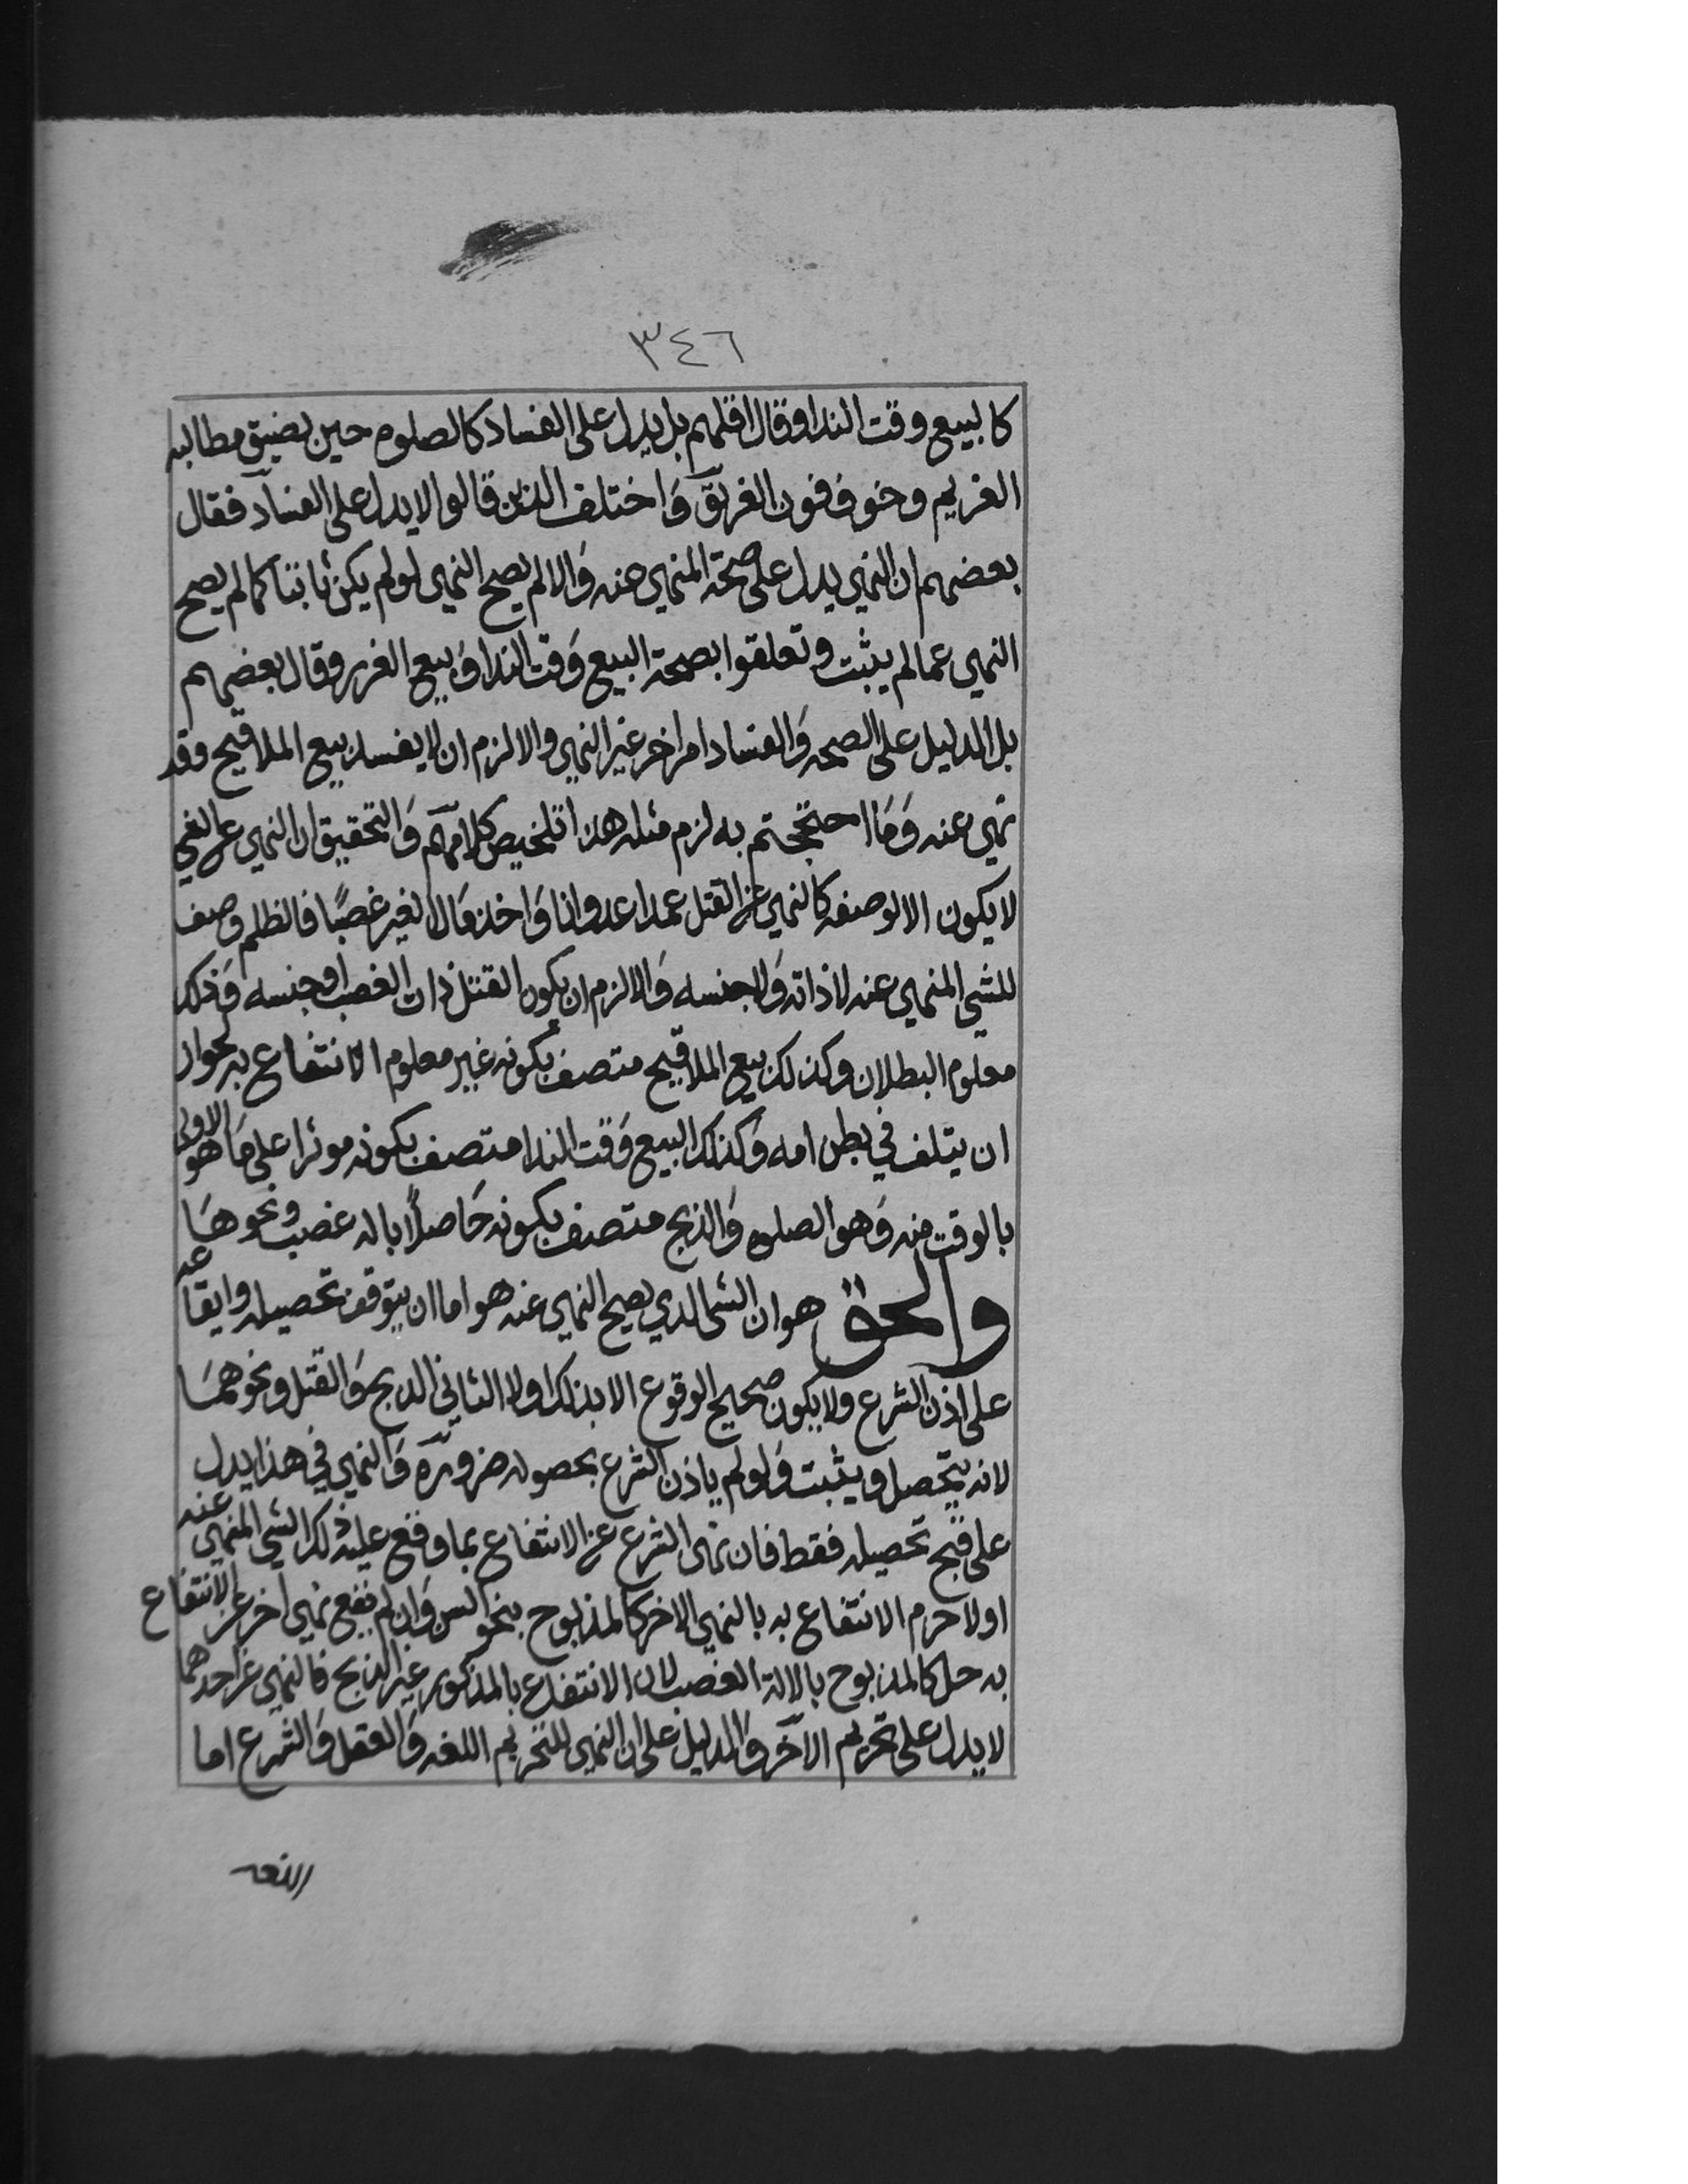 ٣٤٦
كالبيع وقت الندا وقال اقلهم بل يدل على الفساد كالصلوه حين يضيق مطالبه
الغريم وخوف فوت الغريق وَاختلف الذين قالوا لا يدل على الفساد فقال
بعضهم ان النهي يدل على صحة المنهي عنه وَالا لم يصح النهي لو لم يكن ثابتا كما لم يصح
النهي عما لم يثبت وتعلقوا بصحة البيع وَقت الندا وَبيع الغرر وقال بعضهم
بل الدليل على الصحه وَالفساد امر اخر غير النهي والا لزم ان لا يفسد بيع الملاقيح وقد
نهي عنه وَمَا احتججتم به لزم مثله هذا تلخيص كلامهم وَالتحقيق ان النهي عن الشي
لا يكون الا لوصفه كالنهي عن القتل عمدا عدوانا وَاخذ مَال الغير غصبًا فالظلم وصف
للشي المنهي عنه لا ذاته وَلا جنسه وَالا لزم ان يكون القتل ذات الغصب او جنسه وَذلك
معلوم البطلان وكذلك بيع الملاقيح متصف بكونه غير معلوم الانتفاع به لجواز
ان يتلف في بطن امه وَكذلك البيع وَقت الندا متصف بكونه موثرا على مَا هو الاولى
بالوقت منه وَهو الصلوه وَالذبح متصف بكونه حَاصلًا باله غصب ونحوهَا
والحق هو ان الشي الذي يصح النهي عنه هو اما ان يتوقف تحصيله وايقاعه
على اذن الشرع ولا يكون صحيح الوقوع الا بذلك اولا الثاني الذبح وَالقتل ونحوهمَا
لانه يتحصل ويثبت وَلو لم ياذن الشرع بحصوله ضرورة وَالنهي في هذا يدل
على قبح تحصيله فقط فان نهى الشرع عن الانتفاع بما وقع عليه ذلك الشي المنهي عنه
اولا حرم الانتفاع به بالنهي الاخر كالمذبوح بنحو السن وَان لم يقع نهي اخر عن الانتفاع
به حل كالمذبوح بالالة الغصب لان الانتفاع بالمذكور غير الذبح فالنهي عن احدهما
لا يدل على تحريم الآخر وَالدليل على ان النهي للتحريم اللغه وَالعقل وَالشرع اما